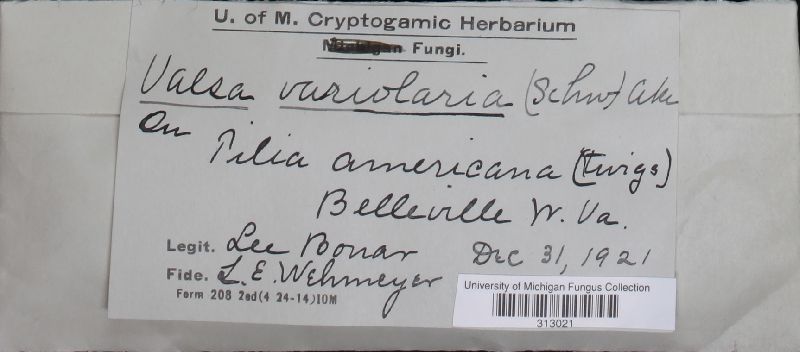 U. of M. Cryptogamic Herbarium
Michigan Fungi.
Valsa variolaria (Schw)
On Tilia americana (twigs)
Belleville W. Va.
Legit. Lee Bonar Dec 31, 1921
Fide. L. E. Wehmeyer
Form 208 2ed(4 24-14)10M
University of Michigan Fungus Collection
313021